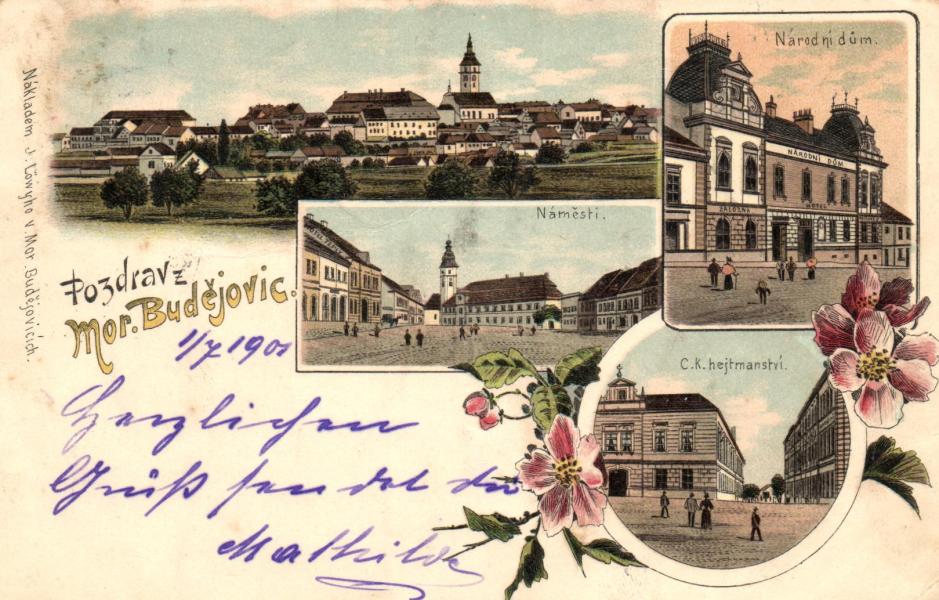 Národní dům.
NÁRODNÍ DŮM
HOTEL
Náměstí.
Pozdrav z
Mor. Budějovic.
C.K. hejtmanství.
Nákladem J. Löwyho v Mor. Budějovicích.
1/7 1901
Herzlichen
Gruß sendet dir
Mathilde